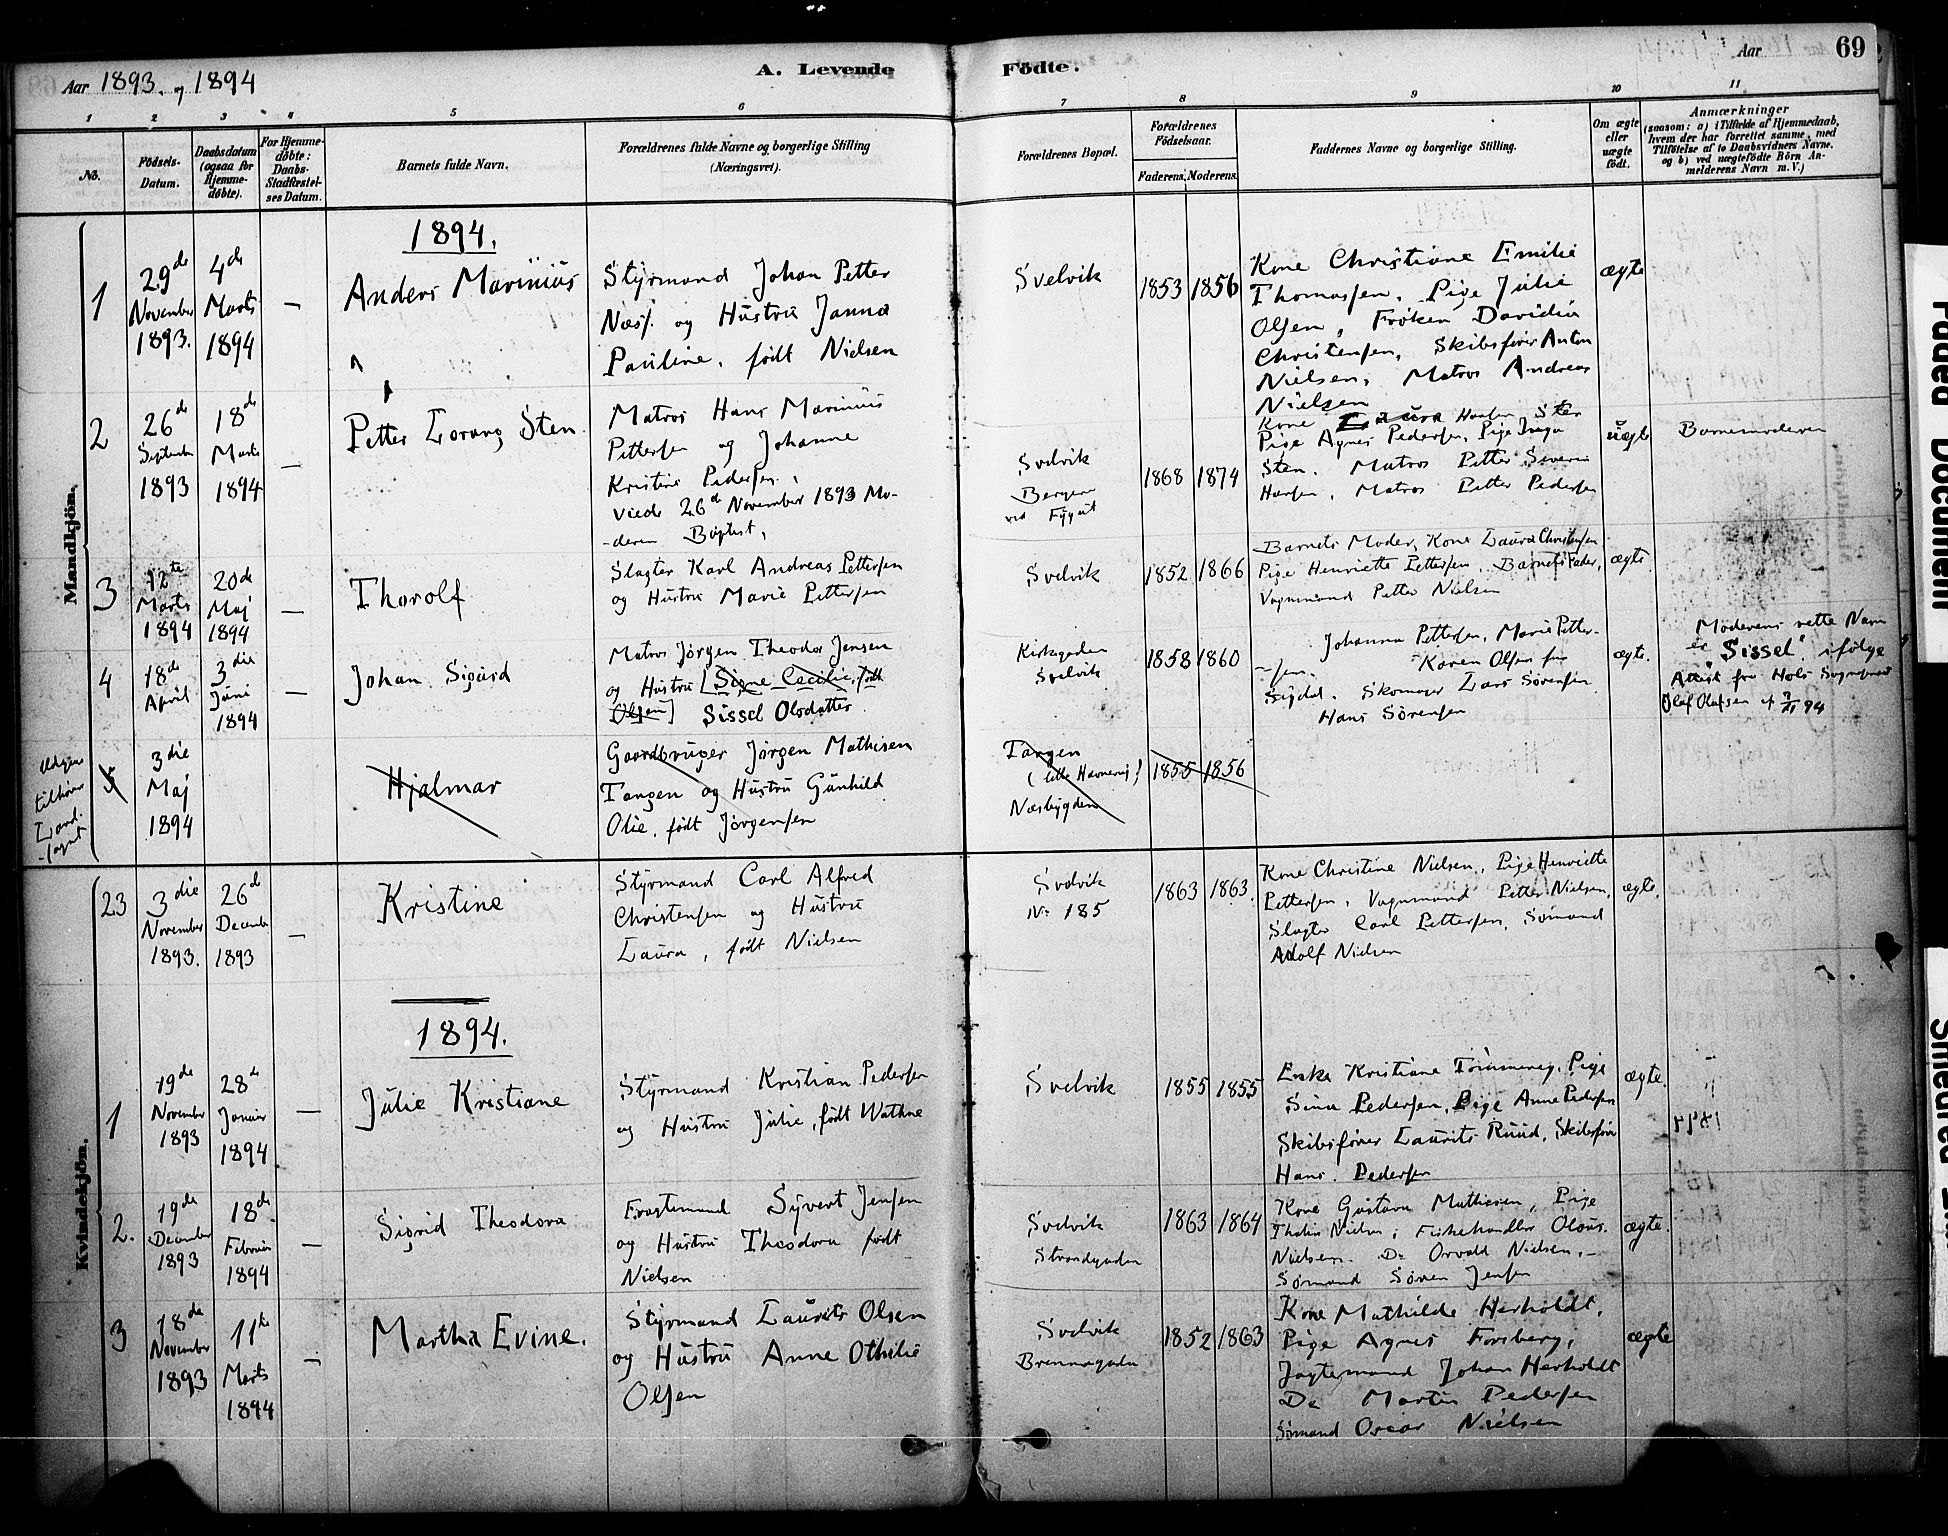 Aar 1893. og 1894
A. Levende Födte.
Aar
69
1 2 3 4 5 6 7 8 9 10 11
No.
Födsels-Datum.
Daabsdatum (ogsaa for Hjemmedöbte).
For Hjemmedöbte: Daabs-Stadfæstelses Datum.
Barnets fulde Navn.
Forældrenes fulde Navne og borgerlige Stilling
(Næringsvei).
Forældrenes Bopæl.
Forældrenes Födselsaar.
Faderens. Moderens.
Faddernes Navne og borgerlige Stilling.
Om ægte eller uægte födt.
Anmærkninger
(saasom: a) i Tilfælde af Hjemmedaab, hvem der har forrettet samme, med Tilföielse af to Daabsvidners Navne, og b) ved uægtefödte Börn Anmelderens Navn m. V.)
Mandkjön.
1894.
1
29de November 1893.
4de Marts 1894
—
Anders Marinius
Styrmand Johan Petter
Næss. og Hustru Janna
Pauline, født Nielsen
Svelvik
1853 1856
Kone Christiane Emilie
Thomassen, Pige Julie
Olsen, Frøken Davidia
Christensen, Skibsfører Anton
Nielsen, Matros Andreas
Nielsen
ægte
2
26de September 1893
18de Marts 1894
—
Petter Lorang Sten
Matros Hans Marinius
Pettersen og Johanne
Kristine Pedersen.
Viede 26d November 1893 Mo-
-deren Baptist,
Svelvik
Bergen
ved
1868 1874
Kone Laura Hansen Sten
Pige Agnes Pedersen, Pige Inga
Sten. Matros Petter Severin
Hansen, Matros Petter Pedersen
uægte
Barnemoderen
3
12te Marts 1894
20de Maj 1894
—
Thorolf
Slagter Karl Andreas Pettersen
og Hustru Marie Pettersen
Svelvik
1852 1866
Barnets Moder, Kone Laura Christensen
Pige Henriette Pettersen, Barnets Fader,
Vognmand Petter Nielsen
ægte
4
18de April
3die Juni 1894
—
Johan Sigurd
Matros Jørgen Theodor Jensen
og Hustru [Signe Cecilie, født
Olsen] Sissel Olsdatter
Kirkegaden
Svelvik
1858 1860
Johanna Pettersen, Marie Petter-
-sen. Karen Olsen fra
Sigdal. Skomager Lars Sørensen
Hans Sørensen
ægte.
Moderens rette Navn
er "Sissel" ifølge
Attest fra Hols Sognepræst
Olaf Olafsen af 7/11 94
Udgaar
tilhører
Land-
-sognet
5
3die Maj 1894
Hjalmar
Gaardbruger Jørgen Mathisen
Tangen og Hustru Gunhild
Olie, født Jørgensen
Tangen
(lille Havnevig)
Næsbygden
1855 1856
Kvindekjön.
23
3die November 1893.
26d December 1893
—
Kristine
Styrmand Carl Alfred
Christensen og Hustru
Laura, født Nielsen
Svelvik
No 185
1863 1863.
Kone Christine Nielsen, Pige Henriette
Pettersen, Vognmand Petter Nielsen,
Slagter Carl Pettersen, Sömand
Adolf Nielsen
ægte.
1894.
1
19de November 1893
28de Januar 1894
—
Julie Kristiane
Styrmand Kristian Pedersen
og Hustru Julie, født Wathne
Svelvik
1855 1855
Enke Kristiane Tömmeraj, Pige
Sina Pedersen, Pige Anne Pedersen
Skibsfører Laurits Ruud, Skibsfører
Hans Pedersen
ægte.
2.
19de December 1893
18de Februar 1894
—
Sigrid Theodora
Fragtemand Syvert Jensen
og Hustru Theodora født
Nielsen
Svelvik
Strandgaden
1863 1864
Kone Gustava Mathiesen, Pige
Thalia Nielsen, Fiskehandler Olaus
Nielsen. Do Orvald Nielsen, -
Sømand Søren Jensen
ægte.
3
18de November 1893
11te Marts 1894
—
Martha Evine.
Styrmand Laurits Olsen
og Hustru Anne Othilie
Olsen
Svelvik
Brennagaden
1852 1863
Kone Mathilde Herholdt,
Pige Agnes Forsberg,
Jagtemand Johan Herholdt
Do Martin Pedersen
Sömand Oscar Nielsen
ægte
Faded Document
Smeared